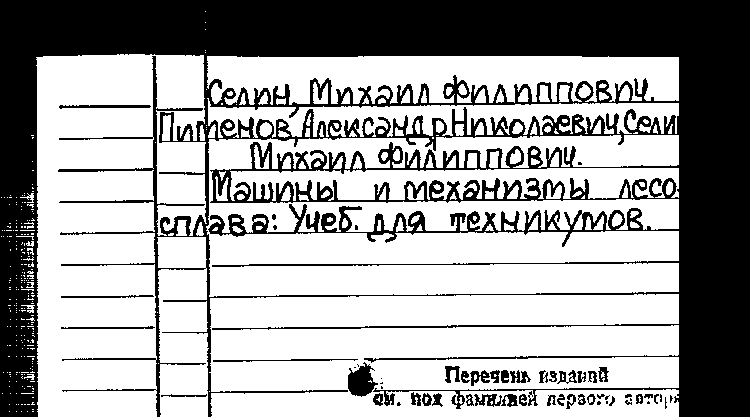 Селин, Михаил Филиппович.
Пименов, Александр Николаевич, Сели
Михаил Филиппович.
Машины и механизмы лесо-
сплава: Учеб. для техникумов.
Перечень изданий
см. под фамилией первого автора